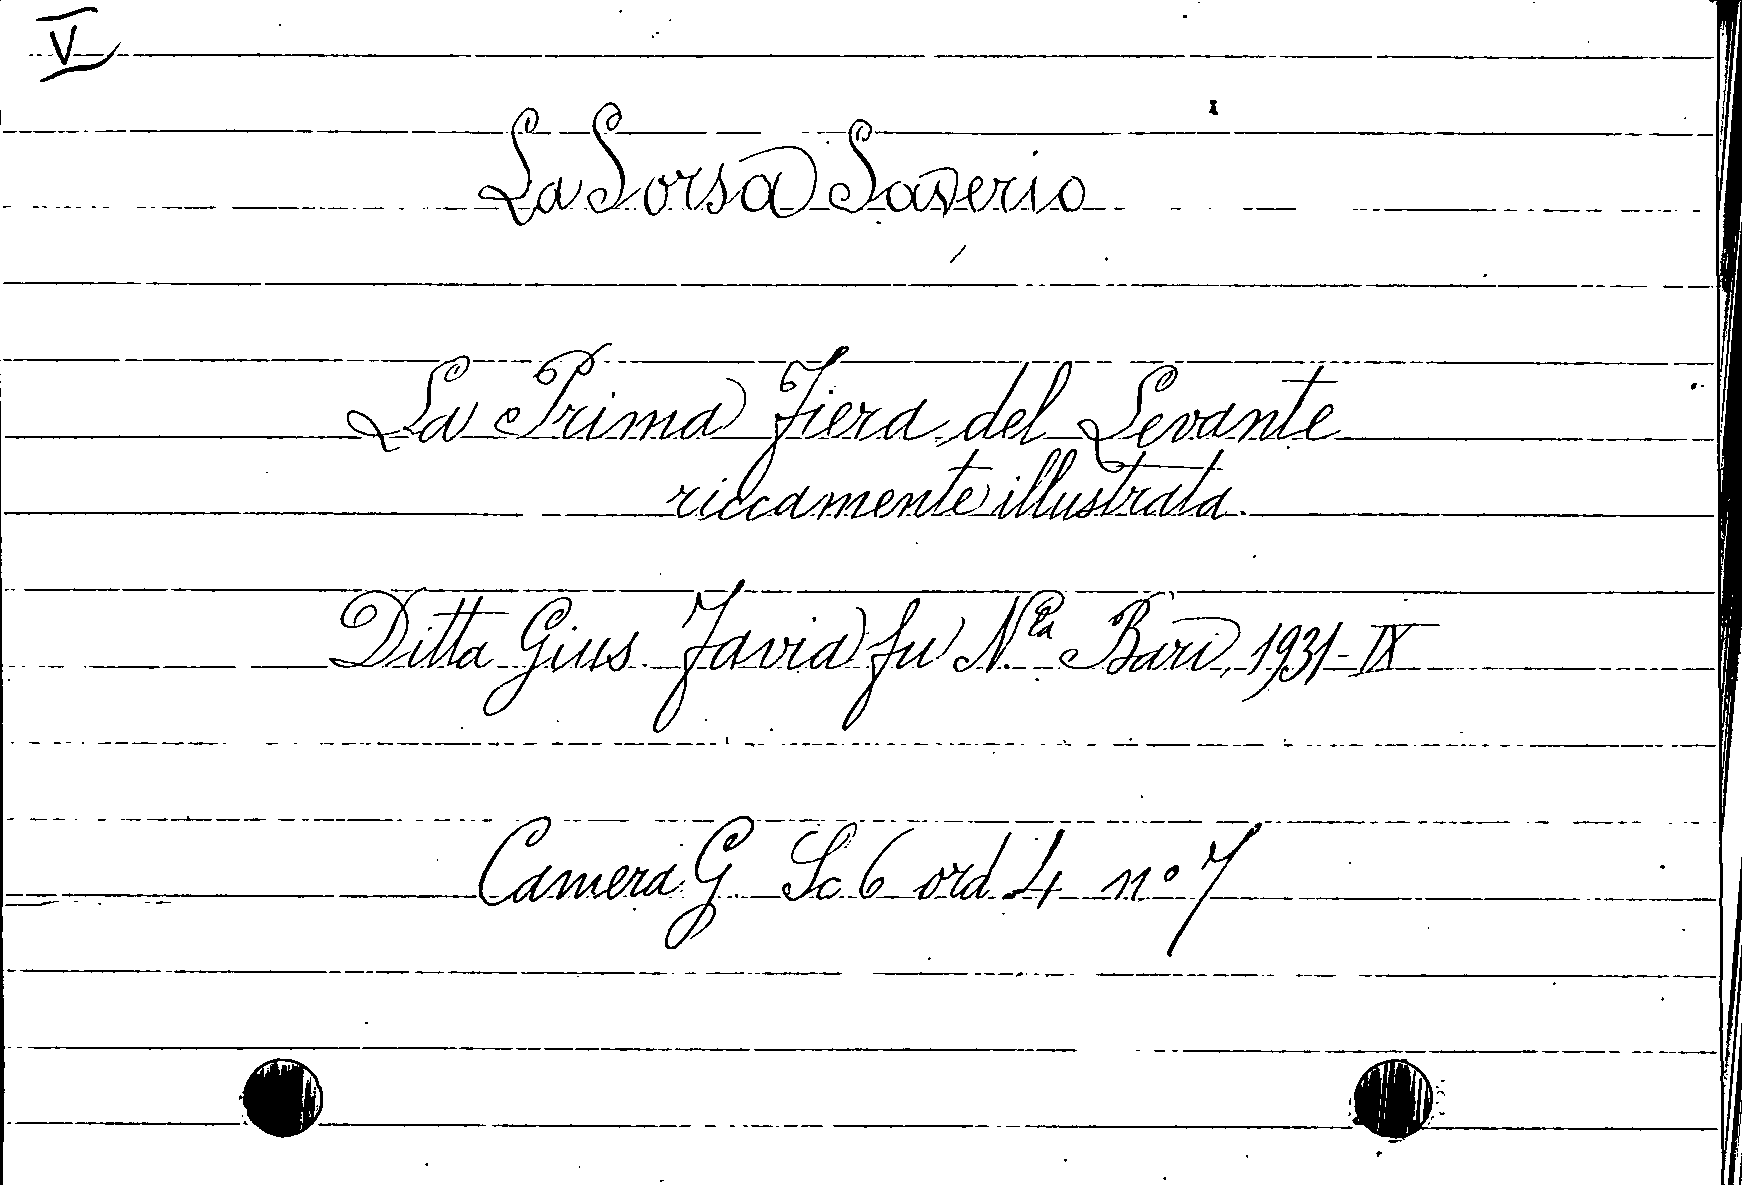 V
La Sorsa Saverio
La Prima Fiera del Levante
riccamente illustrata.
Ditta Gius. Favia fu N.la Bari, 1931-IX
Camera G. Sc 6 ord. 4 n° 7